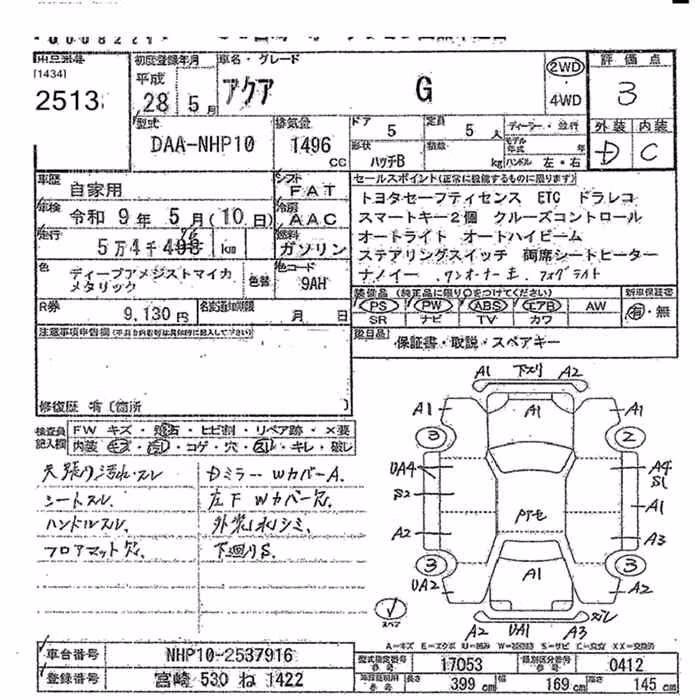 初度登録年月
車名・グレード
評価点
[1434]
2513
平成
28年 5月
アクア G
2WD
・
4WD
3
外装 内装
D C
型式
DAA-NHP10
排気量
1496
CC
ドア 5
定員 5人
形状 ハッチB
積載 kg
ディーラー・並行
モデル年式 年
ハンドル 左・右
車歴
自家用
シフト
FAT
車検
令和 9年 5月(10日)
冷房
AAC
走行
5万4千
km
燃料
ガソリン
色
ディープアメジストマイカ
メタリック
色替
色コード
9AH
R券
9,130円
名変通知期限
月 日
セールスポイント(正常に機能するものに限ります)
トヨタセーフティセンス ETC ドラレコ
スマートキー2個 クルーズコントロール
オートライト オートハイビーム
ステアリングスイッチ 両席シートヒーター
ナノイー ワンオーナー フォグライト
装備品 (純正品に限り○をつけてください)
PS PW ABS エアB AW
SR ナビ TV カワ
新車保証書
有・無
注意事項申告欄(不具合内容は具体的に記入して下さい)
付属品
保証書・取説・スペアキー
修復歴 有(箇所 )
検査員
記入欄
FW キズ・飛石・ヒビ割・リペア跡・×要
内装 キズ・汚レ・コゲ・穴・スレ・キレ・破レ
天張り汚れ・スレ
シートスレ
ハンドルスレ
フロアマット欠
Dミラー WカバーA.
左下 Wカバー欠
外光水シミ
下廻りS.
A1 下スリ A2
A1 A1 A1
3 2
UA4 A4
S1
S2 A1
A2 A3
3 3
UA2 A1 A2
A2 UA1 A3 スレ
スペア
A=キズ E=エクボ U=凹み W=波凹跡 S=サビ C=腐食 XX=交換済
車台番号
NHP10-2537916
登録番号
宮崎 530 ね 1422
型式指定番号
17053
類別区分番号
0412
長さ 399cm
幅 169cm
高さ 145cm